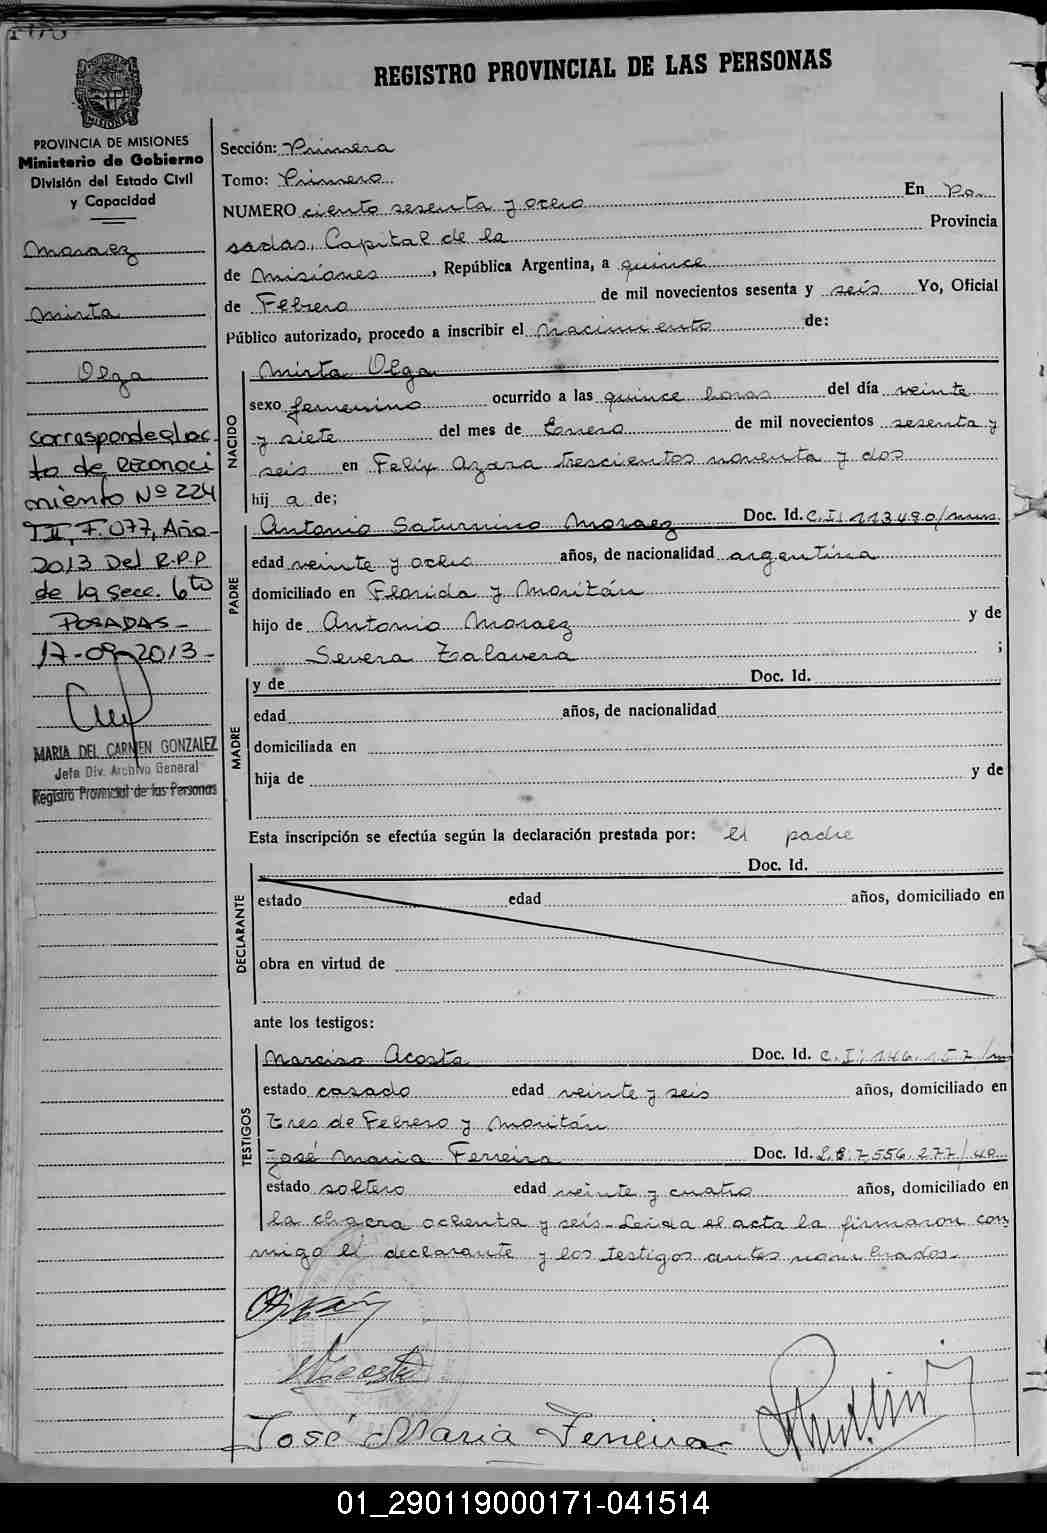 REGISTRO PROVINCIAL DE LAS PERSONAS
MISIONES
PROVINCIA DE MISIONES
Ministerio de Gobierno
División del Estado Civil
y Capacidad
Moraez
Mirta
Olga
corresponde al ac-
to de Reconoci
miento Nº 224
TII, F. 077, Año-
2013 Del R.P.P
de la secc. 6to
POSADAS-
17-09-2013-
MARIA DEL CARMEN GONZALEZ
Jefa Div. Archivo General
Registro Provincial de las Personas
Sección: Primera
Tomo: Primero
NUMERO ciento sesenta y ocho En Po-
sadas, Capital de la Provincia
de Misiones, República Argentina, a quince
de Febrero de mil novecientos sesenta y seis Yo, Oficial
Público autorizado, procedo a inscribir el nacimiento de:
NACIDO
Mirta Olga
sexo femenino ocurrido a las quince horas del día veinte
y siete del mes de Enero de mil novecientos sesenta y
seis en Felix Azara trescientos noventa y dos
hij a de;
PADRE
Antonio Saturnino Moraez Doc. Id. C.I: 113490/mns.
edad veinte y ocho años, de nacionalidad argentina
domiciliado en Florida y Moritán
hijo de Antonio Moraez y de
Severa Talavera ;
MADRE
y de Doc. Id.
edad años, de nacionalidad
domiciliada en
hija de y de
Esta inscripción se efectúa según la declaración prestada por: el padre
DECLARANTE
Doc. Id.
estado edad años, domiciliado en
obra en virtud de
ante los testigos:
TESTIGOS
Narciso Acosta Doc. Id. C.I: 146.157/m
estado casado edad veinte y seis años, domiciliado en
Tres de Febrero y Moritán
José Maria Ferreira Doc. Id. L.E: 7.556.277/40
estado soltero edad veinte y cuatro años, domiciliado en
la chacra ochenta y seis-Leida el acta la firmaron con
migo el declarante y los testigos antes nombrados-
NAcosta
José Maria Ferreira
01_290119000171-041514